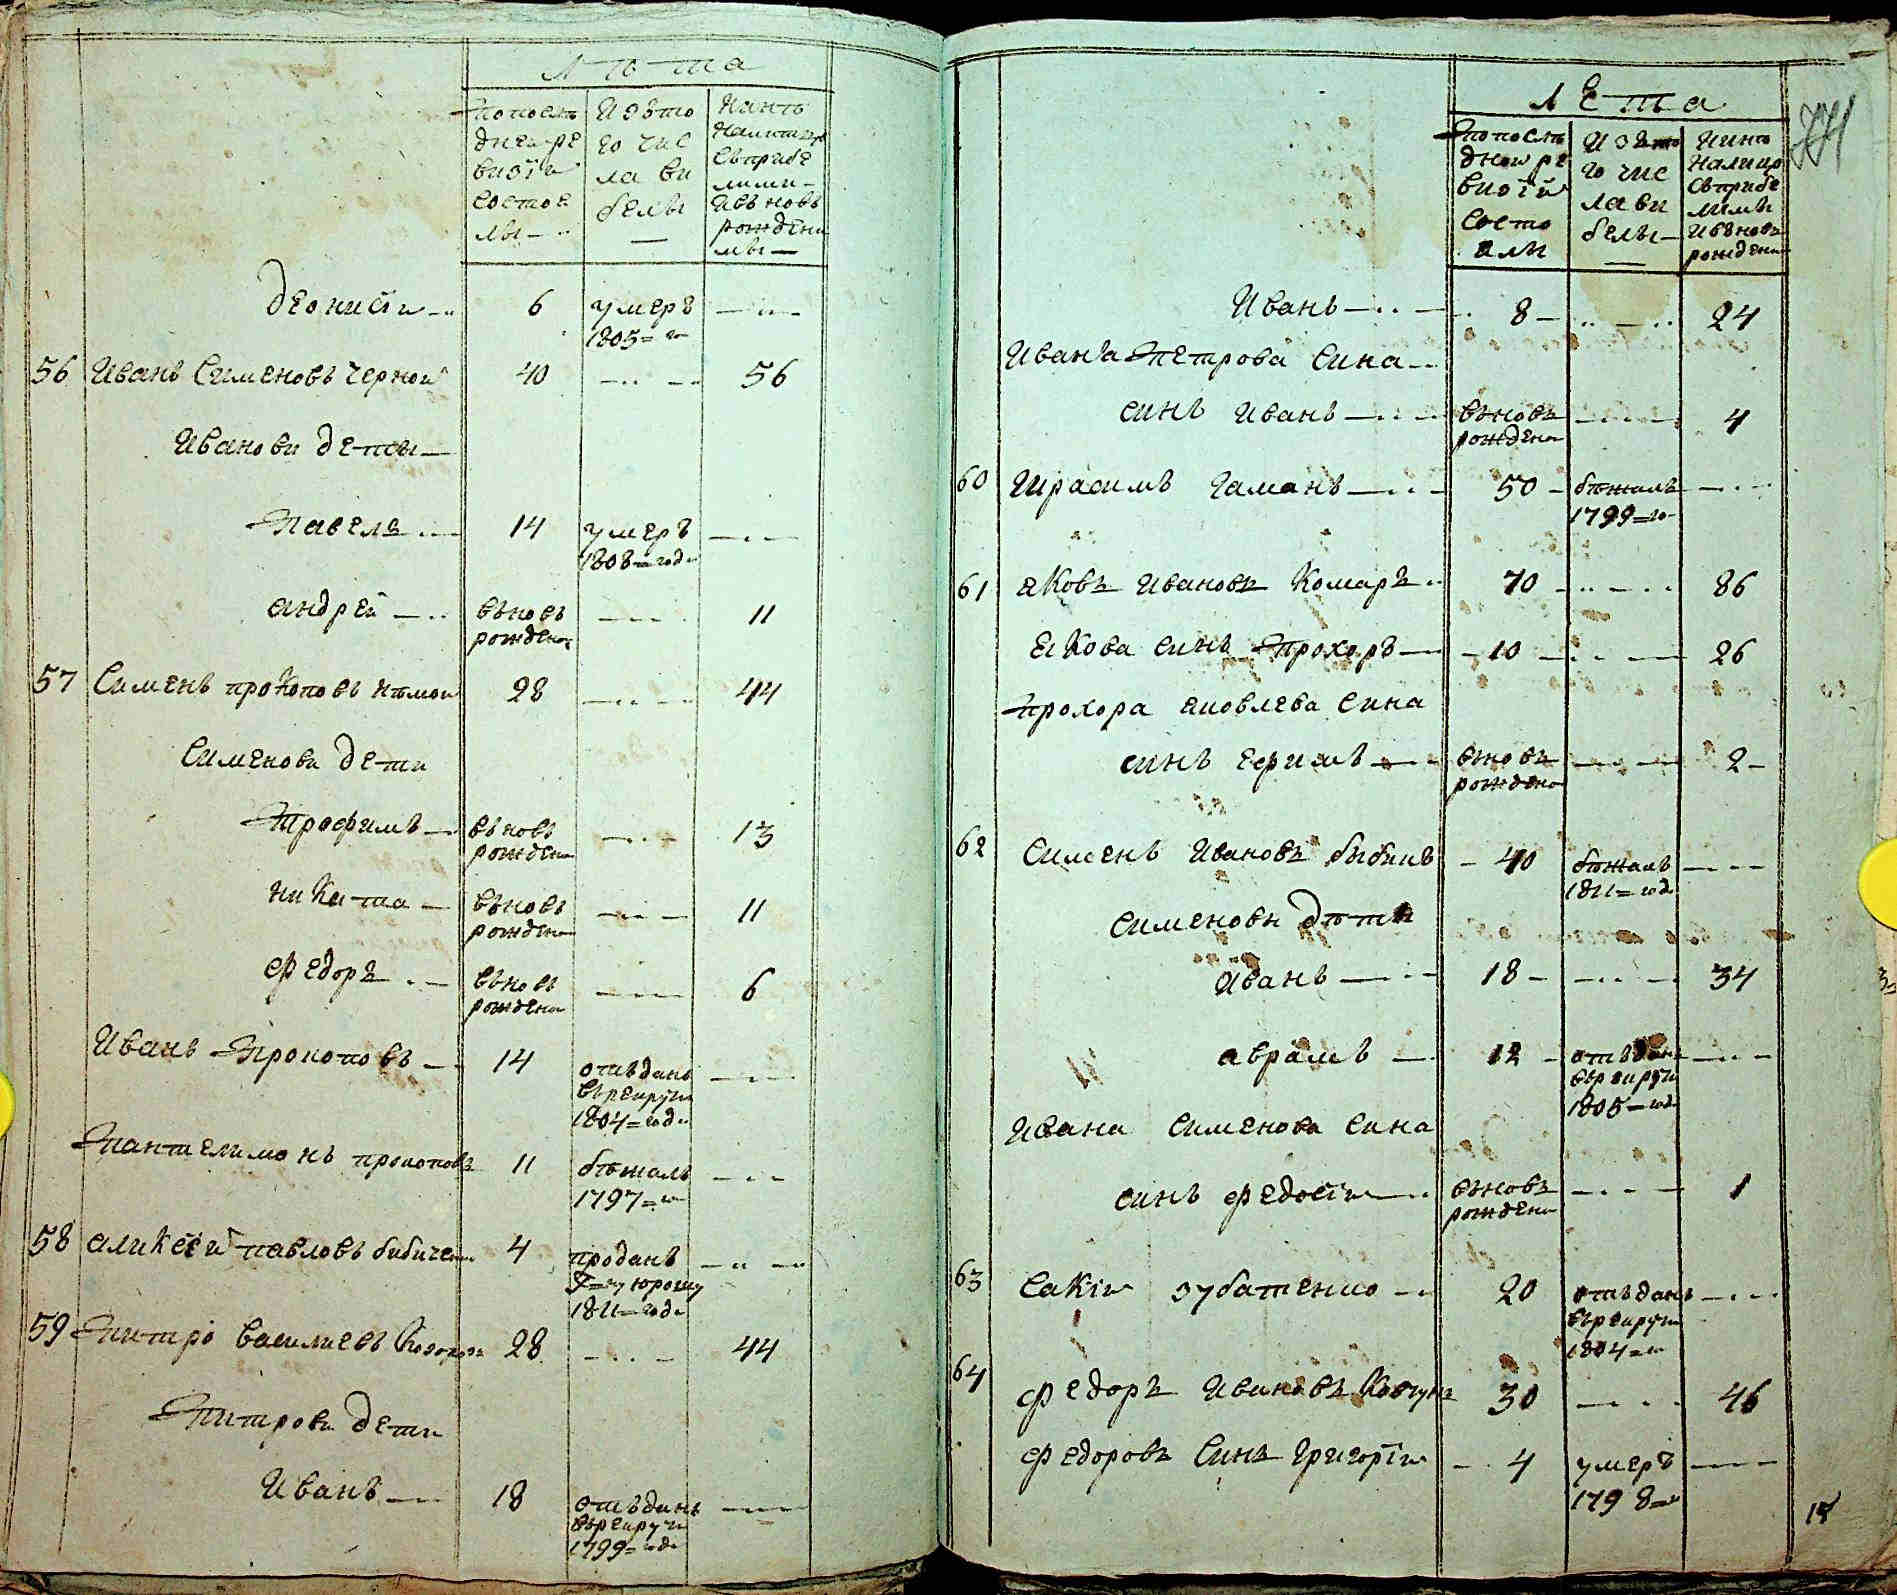 Лѣта
по послѣ
дней ре
визіи
состоя
лы
Изъто
го чис
ла вы
были
Нынѣ
налицо
съприбы
лыми
ивъновь
рожден
мы
Деонисіи 6 умеръ
1805 го
56 Иванъ Сименовъ Черной 40 56
Иванови дети
Павелъ 14 умеръ
1808 году
андрей вьновь 11
рожден
57 Сименъ прокоповъ нѣмои 28 44
Сименови дети
Трофимъ вьновь 13
рожден
никита вьновь 11
рожден
Федоръ вьновь 6
рожден
Иванъ Прокоповъ 14 отъданъ
въреируты
1804 году
Пантелимонъ прокоповъ 11 бѣжалъ
1797 го
58 аликсѣй павловъ 4 проданъ
1811 году
59 Питро василиевъ 28 44
Питрови дети
Иванъ 18 отъданъ
въреируты
1799 году
Лета
по послѣ
дней ре
визіи
состо
ялы
Изъто
го чис
ла вы
были
Нынѣ
налицо
съприбе
лымы
ивъновь
рожден
Иванъ 8 24
Ивана Петрова сина
синъ Иванъ вьновь 4
рожден
60 Гирасимъ Гаманъ 50 бѣжалъ
1799 го
61 аковъ Ивановъ Комаръ 70 86
Еакова синъ Прохоръ 10 26
Прохора яковлева сина
синъ ефимъ вьновь 2
рожден
62 Сименъ Ивановъ 40 бѣжалъ
1811 году
Сименови дѣти
Иванъ 18 34
аврамъ 12 отъданъ
въреируты
1805 году
Ивана Сименова сина
синъ Федосіи вьновь 1
рожден
63 Еакіи зубатенко 20 отъданъ
въреируты
1804 го
64 Федоръ Ивановъ Ковтунъ 30 46
Федоровъ синъ Григоріи 4 умеръ
1798 го